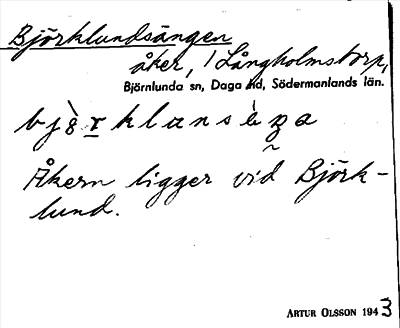 Björklundsängen
åker, / Långholmstorp,
Björnlunda sn, Daga hd, Södermanlands län.
Åkern ligger vid Björk-
lund.
ARTUR OLSSON 1943